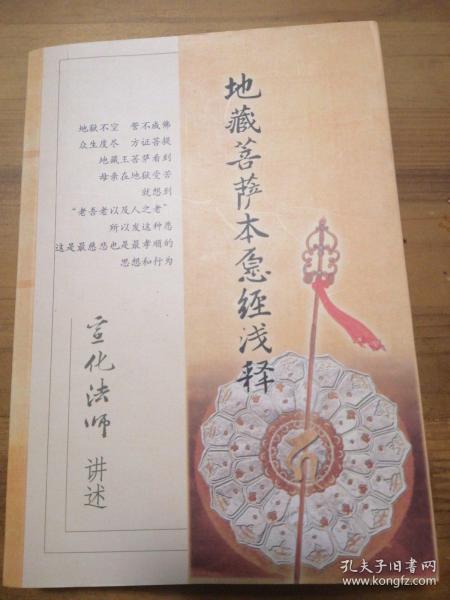 地藏菩萨本愿经浅释
地狱不空 誓不成佛
众生度尽 方证菩提
地藏王菩萨看到
母亲在地狱受苦
就想到
“老吾老以及人之老”
所以发这种愿
这是最慈悲也是最孝顺的
思想和行为
宣化法师 讲述
孔夫子旧书网
www.kongfz.com